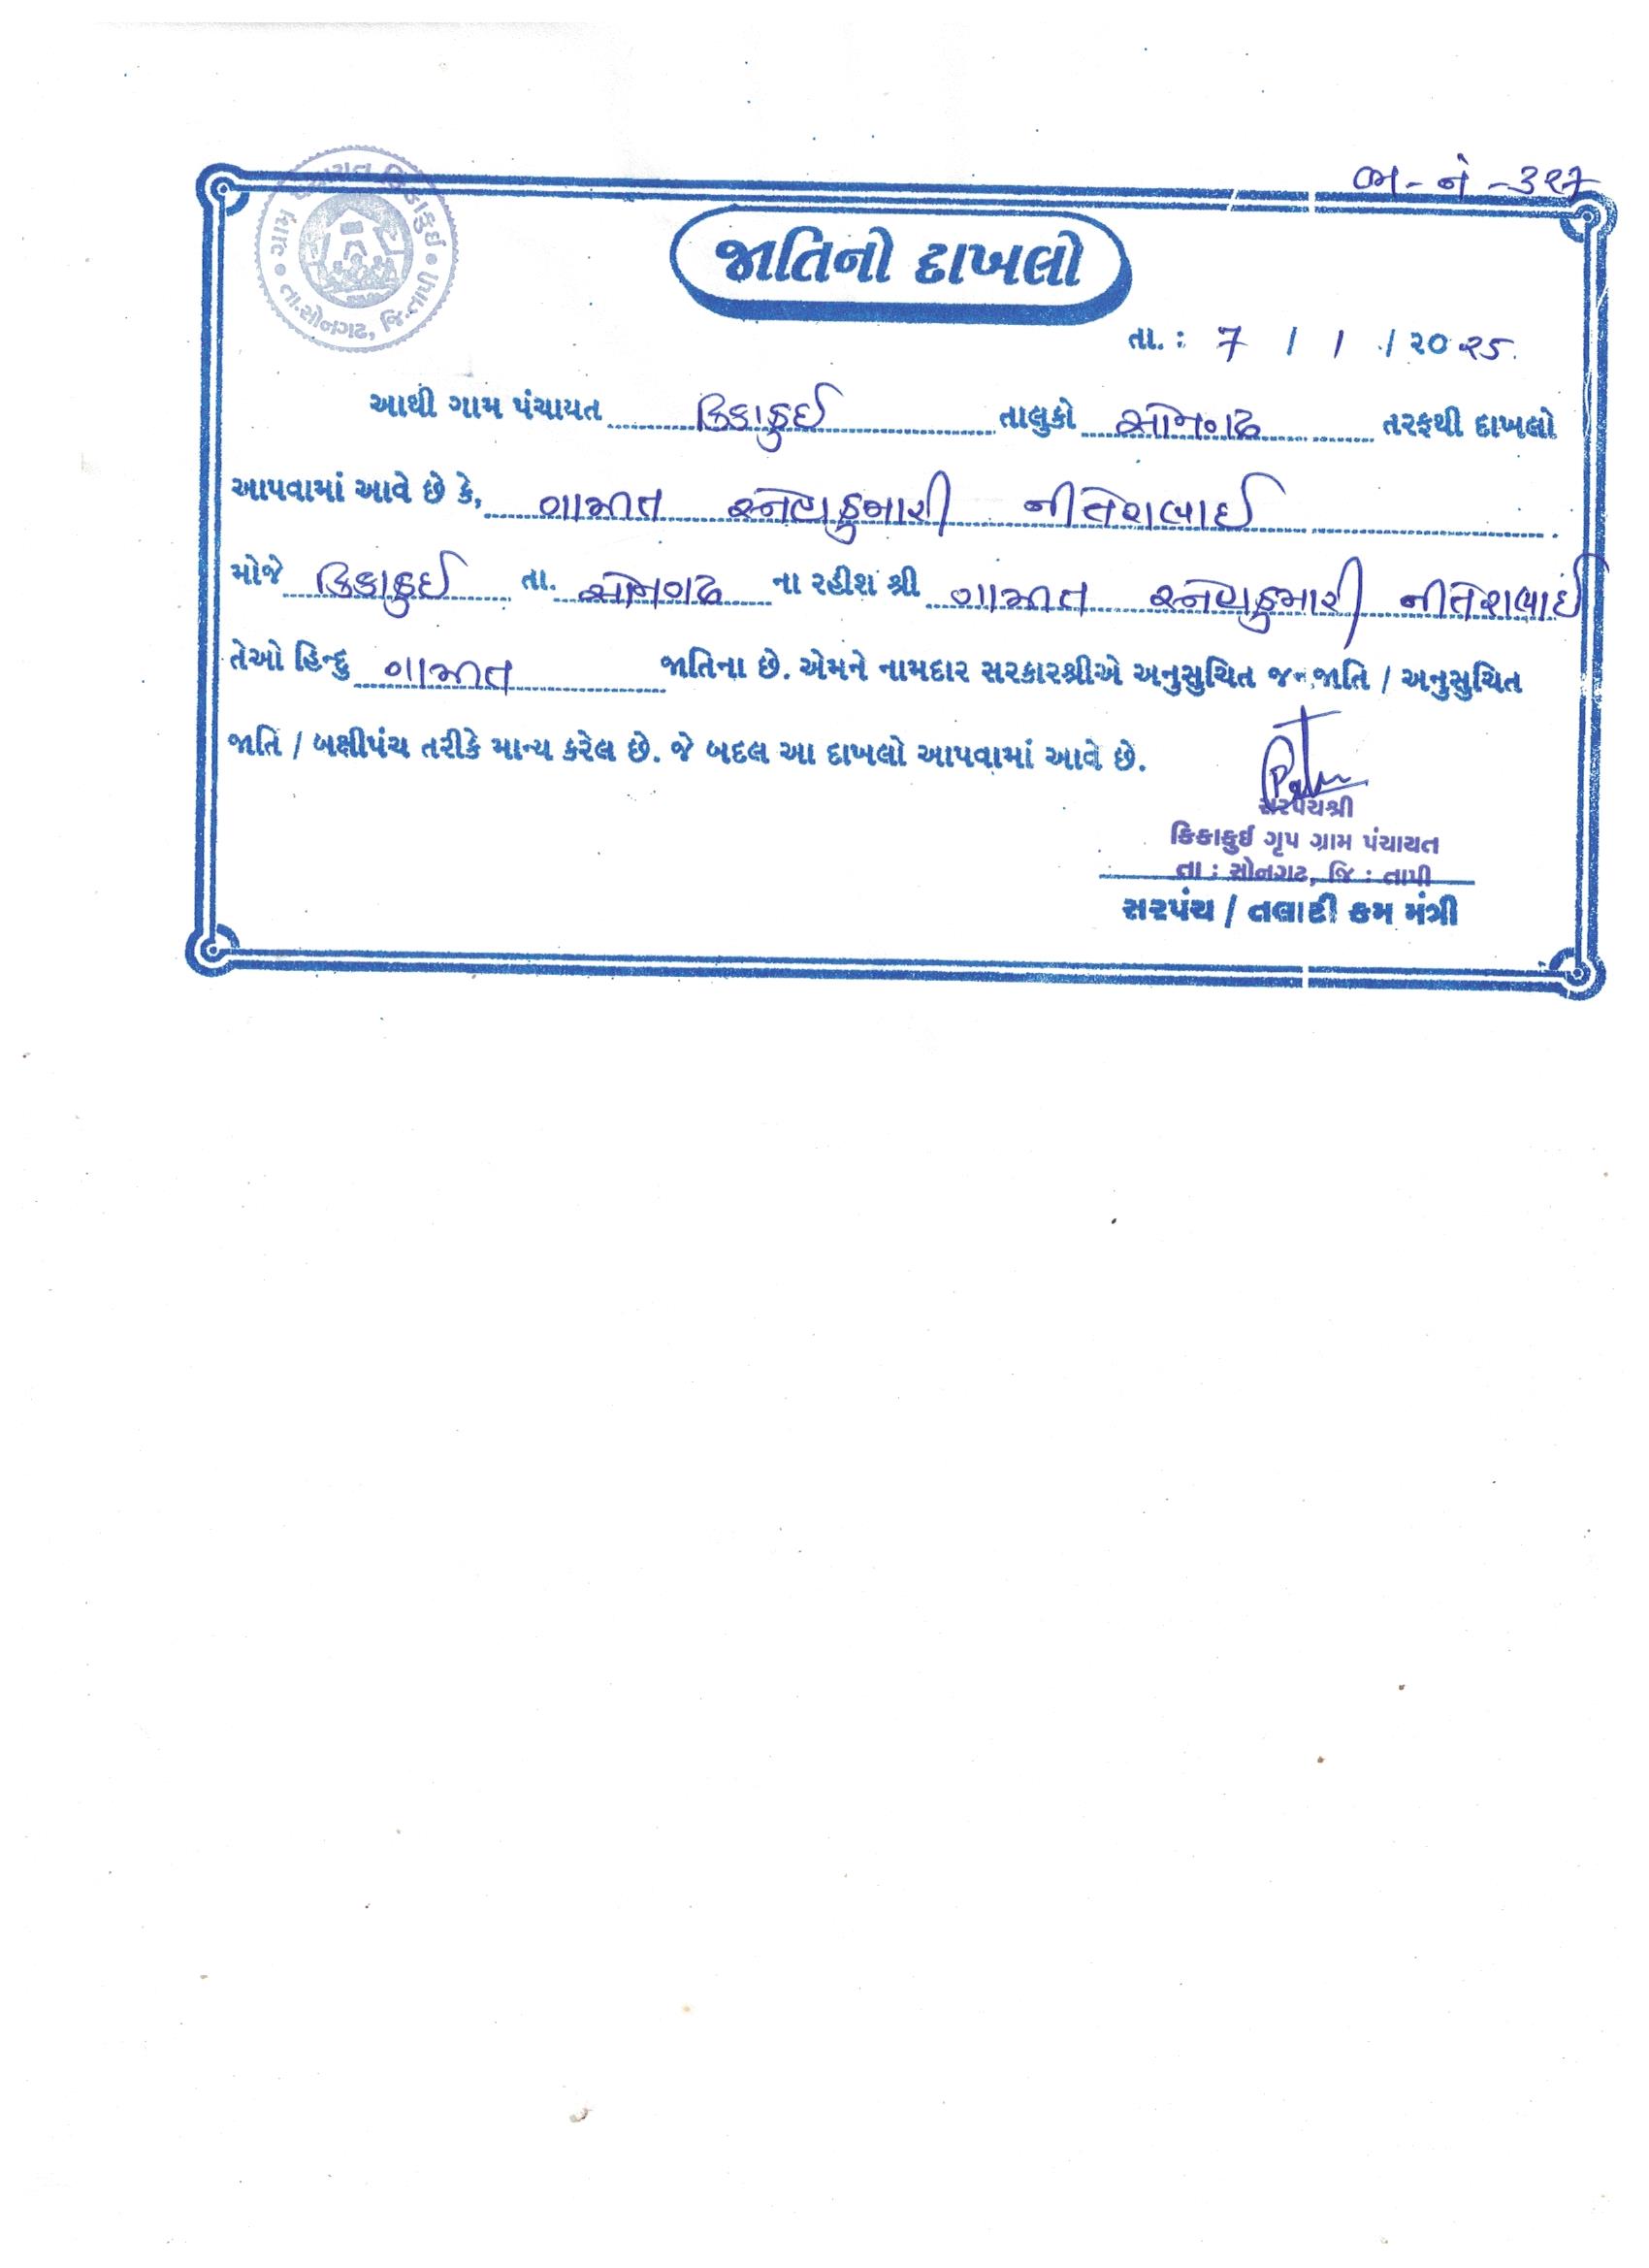 ગ્રામ પંચાયત કિકાકુઇ
તા.સોનગઢ, જિ.તાપી
જા - નં - ૩૨૭
જાતિનો દાખલો
તા. : 7 / 1 / ૨૦૨૫.
આથી ગામ પંચાયત કિકાકુઈ તાલુકો સોનગઢ તરફથી દાખલો
આપવામાં આવે છે કે, ગામીત સ્નેહાકુમારી નીતેશભાઈ .
મોજે કિકાકુઈ તા. સોનગઢ ના રહીશ શ્રી ગામીત સ્નેહાકુમારી નીતેશભાઈ
તેઓ હિન્દુ ગામીત જાતિના છે. એમને નામદાર સરકારશ્રીએ અનુસુચિત જનજાતિ / અનુસુચિત
જાતિ / બક્ષીપંચ તરીકે માન્ય કરેલ છે. જે બદલ આ દાખલો આપવામાં આવે છે.
સરપંચશ્રી
કિકાકુઈ ગૃપ ગ્રામ પંચાયત
તા : સોનગઢ, જિ : તાપી
સરપંચ / તલાટી કમ મંત્રી